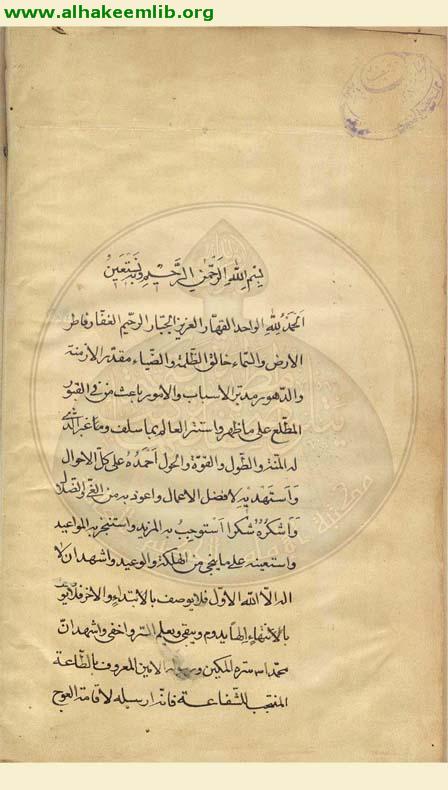 www.alhakeemlib.org
بسم الله الرحمن الرحيم وبه نستعين
الحمد لله الواحد القهار العزيز الجبار الرحيم الغفار فاطر
الارض والسماء خالق الظلمة والضياء مقدر الازمنة
والدهور مدبر الاسباب والامور باعث من في القبور
المطلع على ما ظهر واستتر العالم بما سلف وما غبر الذي
له المنة والطول والقوة والحول احمده على كل الاحوال
واستهديه لافضل الاعمال واعوذ به من الغي والضلال
واشكره شكرا استوجب به المزيد واستنجز به المواعيد
واستعينه على ما ينجي من الهلكة والوعيد واشهد ان لا
اله الا الله الاول فلا يوصف بالابتداء والاخر فلا يوصف
بالانتهاء الها يدوم ويبقى ويعلم السر واخفى واشهد ان
محمدا المكين ورسوله الامين المعروف بالطاعة
المنتجب للشفاعة فانه ارسله لاقامة العوج